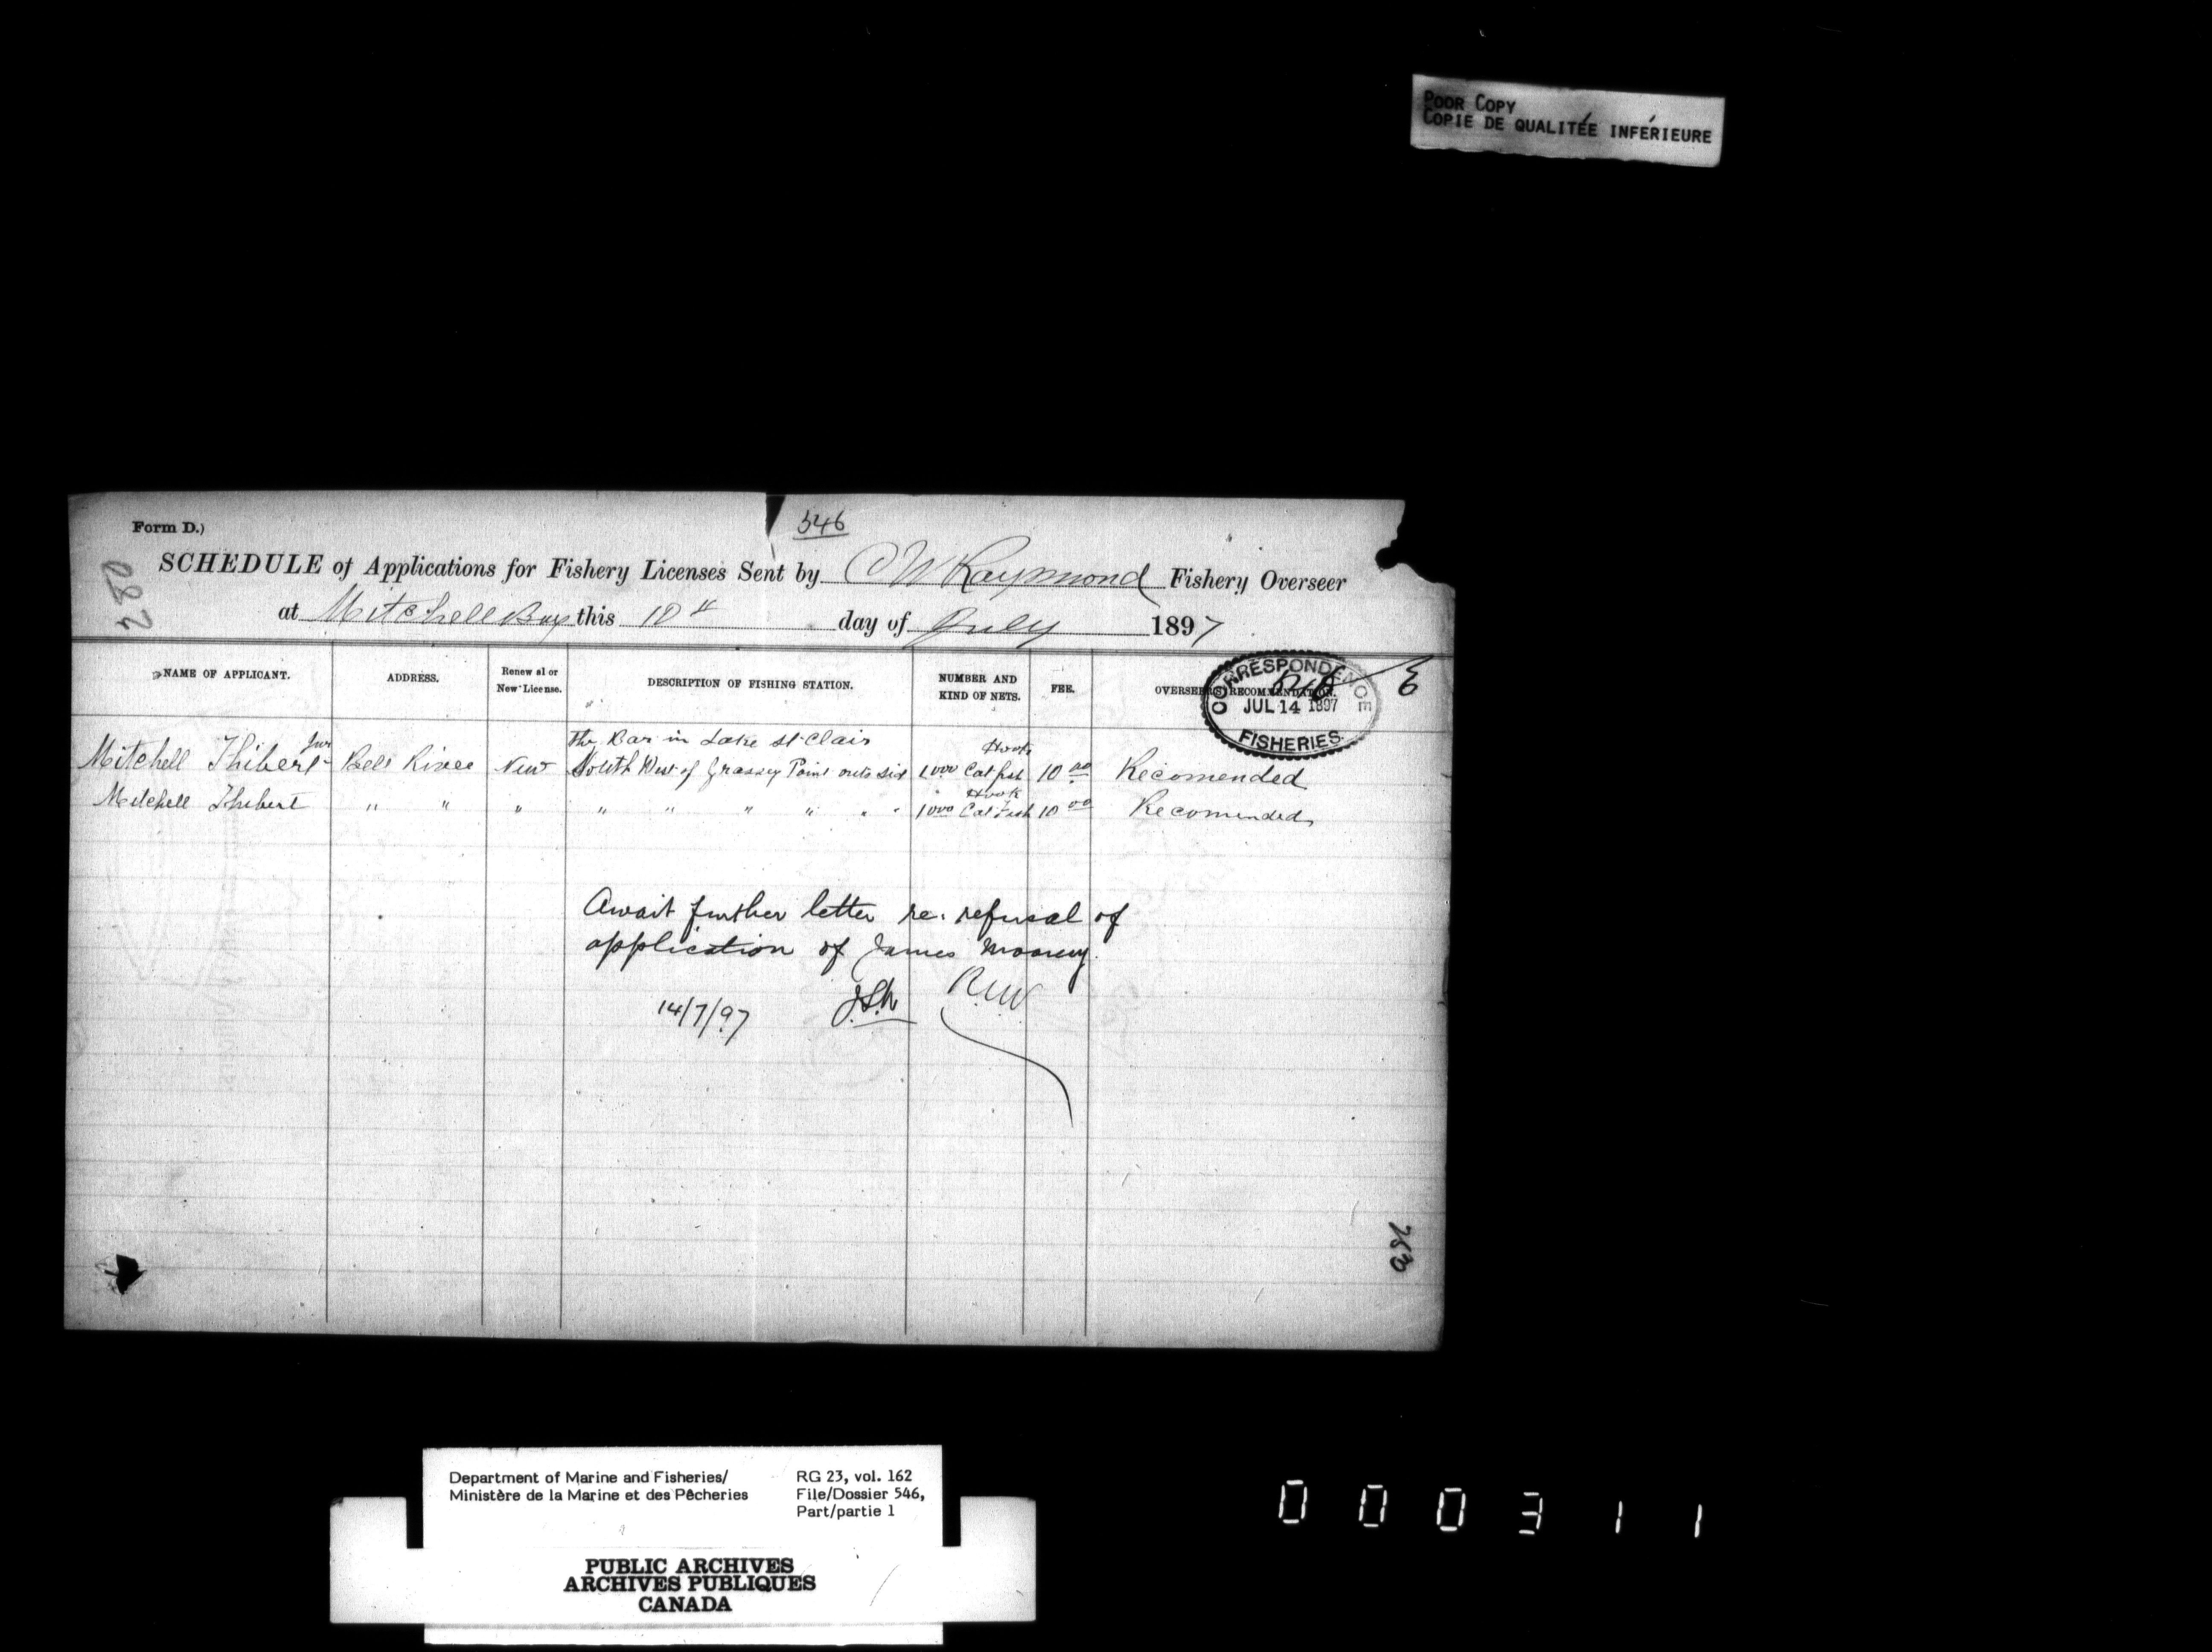 POOR COPY
COPIE DE QUALITÉE INFÉRIEURE
546
Form D.)
280
SCHEDULE of Applications for Fishery Licenses Sent by C W Raymond Fishery Overseer
at Mitchell Bay this 10th day of July 1897
NAME OF APPLICANT. ADDRESS. Renewal or New License. DESCRIPTION OF FISHING STATION. NUMBER AND KIND OF NETS. FEE. OVERSEER(S) RECOMMENDATION.
CORRESPONDENCE
JUL 14 1897
FISHERIES.
The Bar in Lake St Clair
Mitchell Thibert Jur Bell River New South West of Grassey Point outs side 1000 Cat fish Hook 10 00 Recomended
Mitchell Thibert " " " " " " " " " 1000 Cat Fish Hook 10 00 Recomended
Await further letter re. refusal of
application of James Mooney.
14/7/97 R.W.
Department of Marine and Fisheries/
Ministère de la Marine et des Pêcheries
RG 23, vol. 162
File/Dossier 546,
Part/partie 1
PUBLIC ARCHIVES
ARCHIVES PUBLIQUES
CANADA
000311